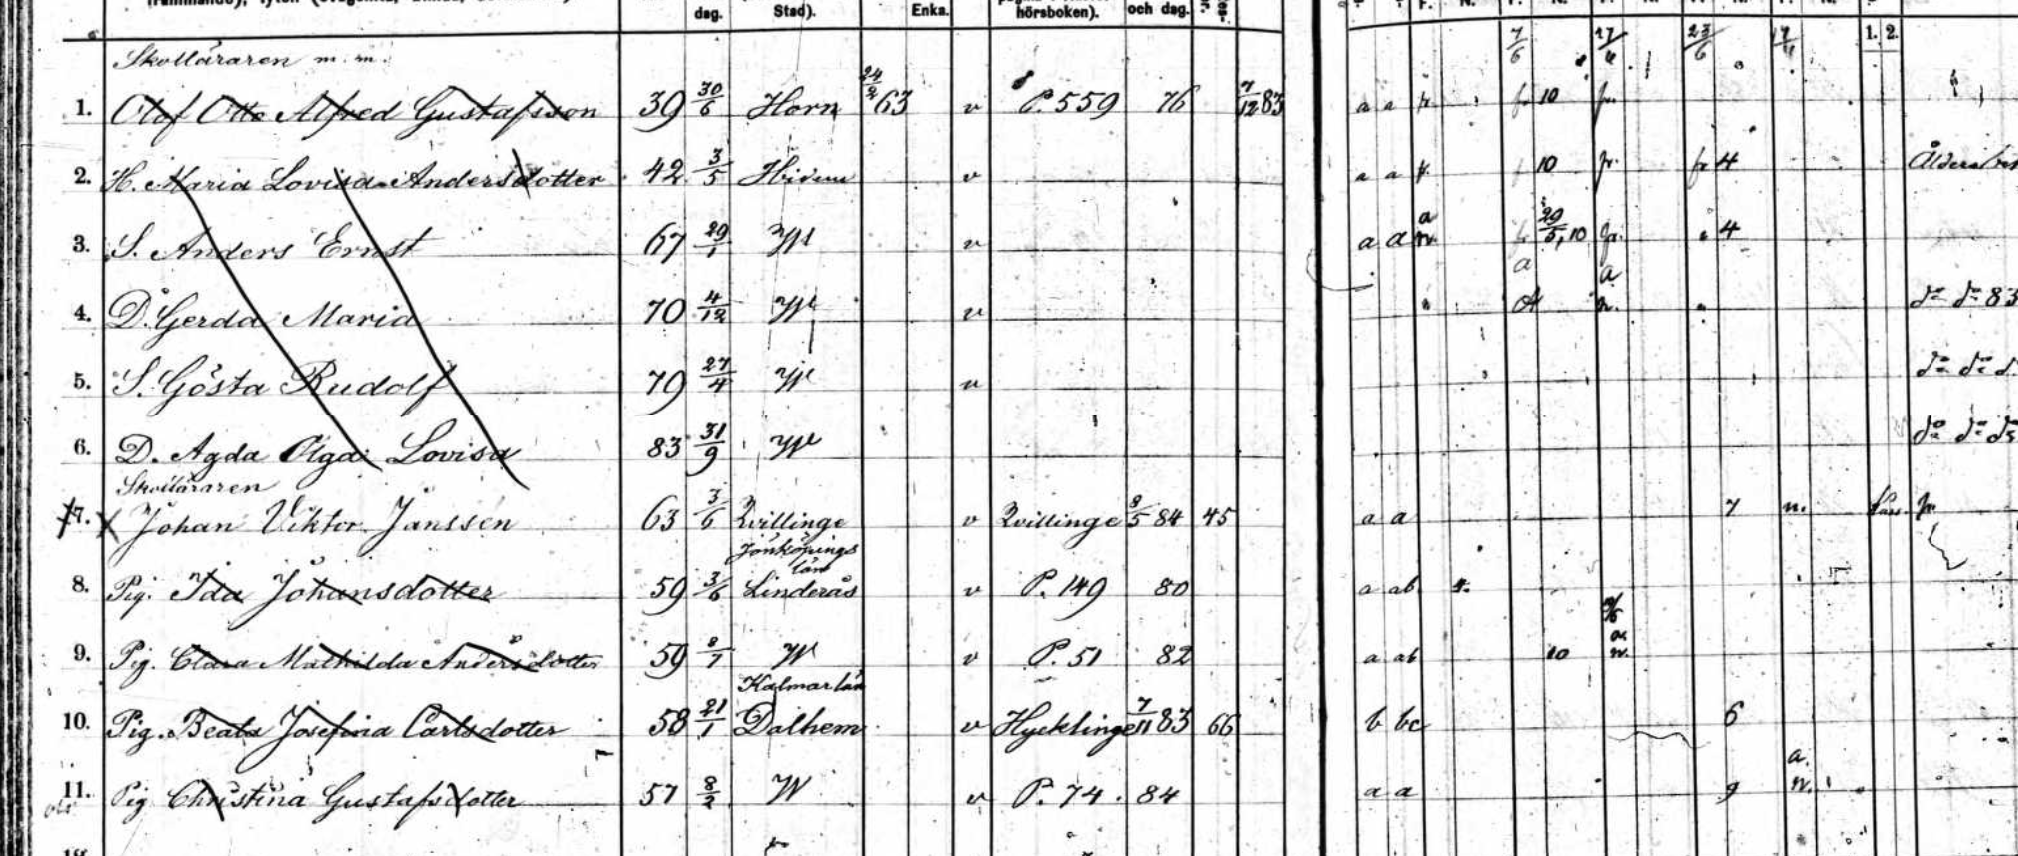 dag. Stad). Enka. hörsboken). och dag.
7/6 27/4 23/6 1. 2.
Skolläraren m. m.
1. Olof Otto Alfred Gustafsson 39 30/6 Horn 24/2 63 v P. 559 76 7/12 83 a a 10
2. H. Maria Lovisa Andersdotter 42 3/5 Hidem v a a 10 fr. fr 4
3. S. Anders Ernst 67 29/1 W v a a 29/5, 10 4
4. D. Gerda Maria 70 4/12 W v do do 83
5. S. Gösta Rudolf 79 27/4 W v do do
6. D. Agda Olga Lovisa 83 31/9 W do do
Skolläraren
7. Johan Viktor Janssen 63 3/6 Qvillinge v Qvillinge 8/5 84 45 a a 7 n.
Jönköpings
län
8. Pig. Ida Johansdotter 59 3/6 Linderås v P. 149 80 a ab
9. Pig. Clara Mathilda Andersdotter 59 8/7 W v P. 51 82 a ab 10
Kalmar län
10. Pig. Beata Josefina Carlsdotter 58 21/1 Dalhem v Hycklinge 7/11 83 66 b bc 6
11. Pig. Christina Gustafsdotter 57 8/2 W v P. 74 84 a a 9